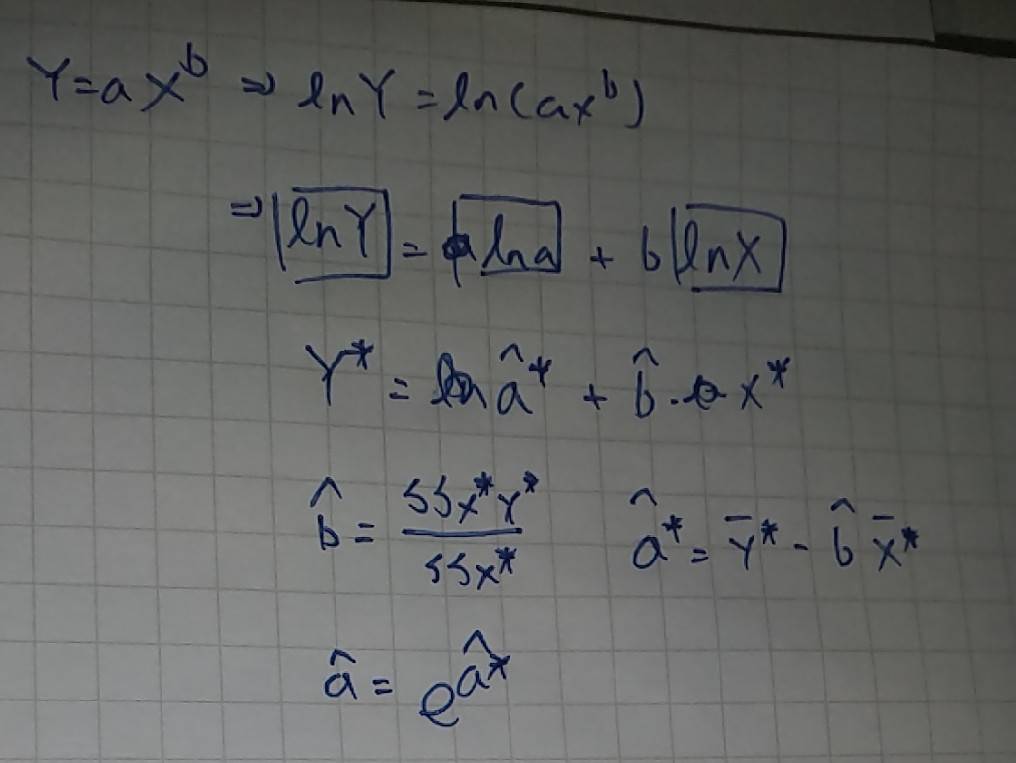 Y = a X^b ⇒ ln Y = ln(ax^b)
⇒ ln Y = ln a + b ln X
Y* = â* + b̂ · X*
b̂ = SSx*Y* / SSx*    â* = Ȳ* - b̂ X̄*
â = e^â*